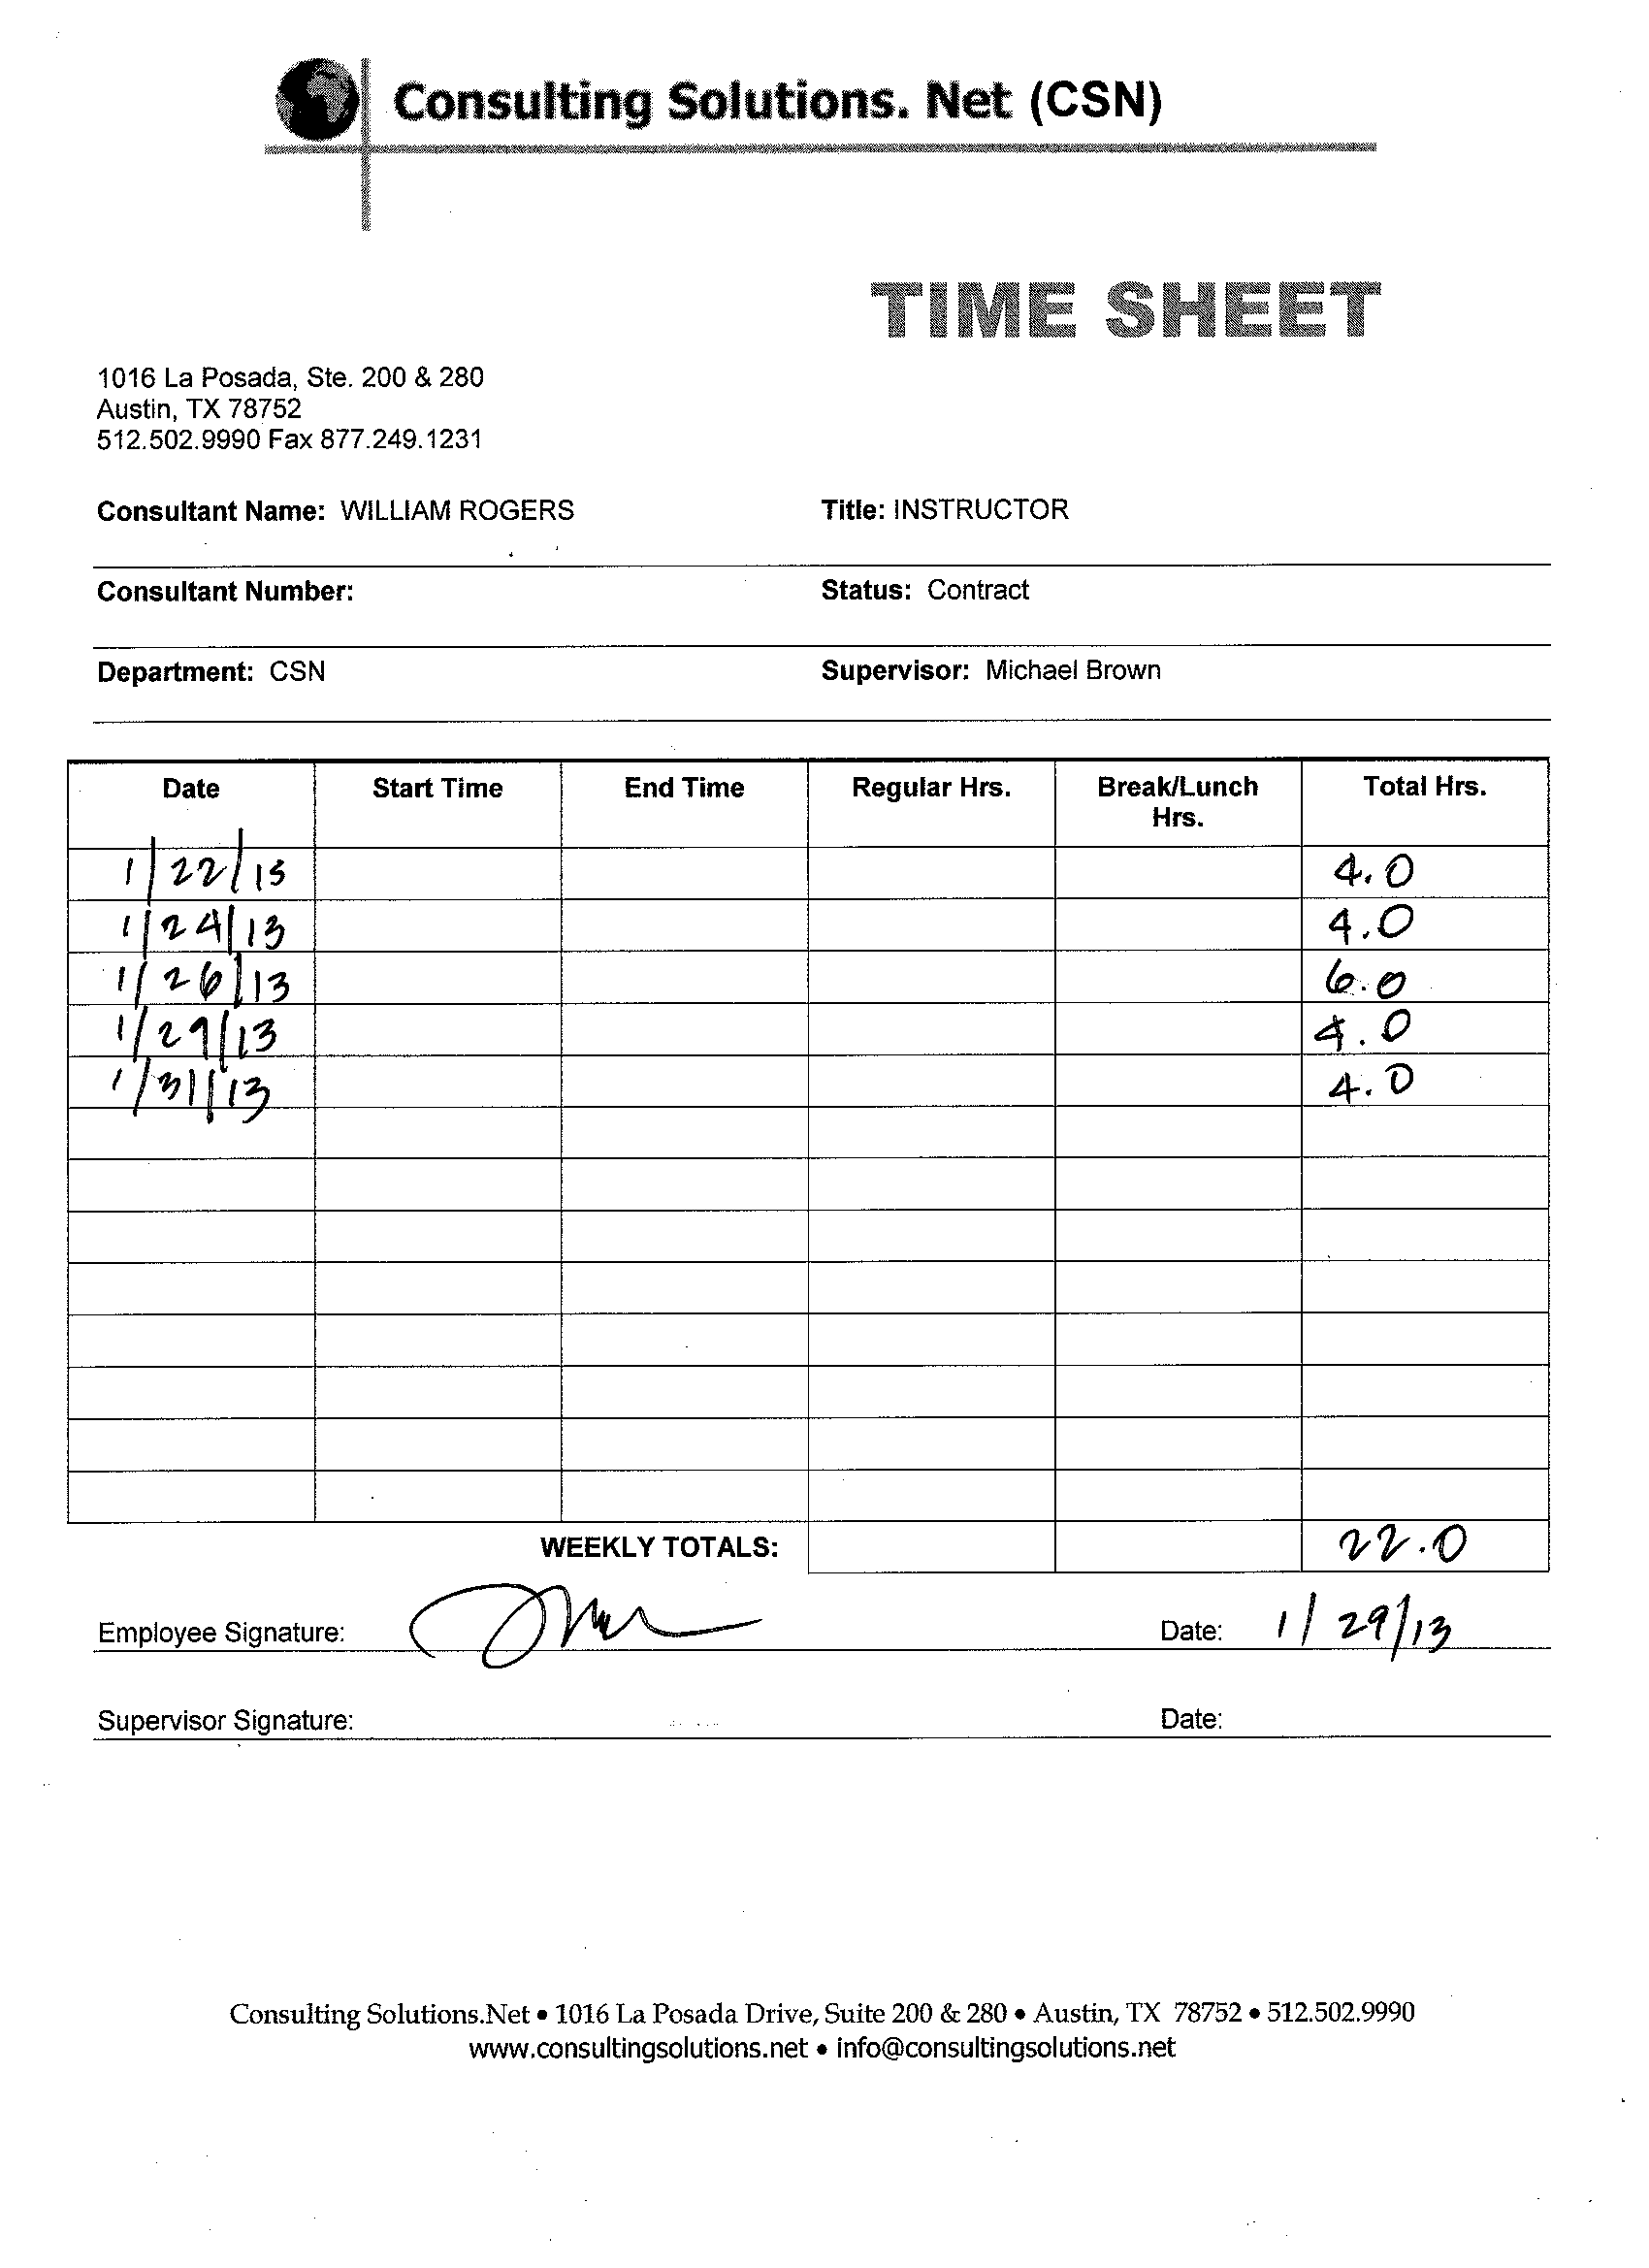 Consulting Solutions. Net (CSN)
TIME SHEET
1016 La Posada, Ste. 200 & 280
Austin, TX 78752
512.502.9990 Fax 877.249.1231
Consultant Name: WILLIAM ROGERS Title: INSTRUCTOR
Consultant Number: Status: Contract
Department: CSN Supervisor: Michael Brown
Date Start Time End Time Regular Hrs. Break/Lunch Hrs. Total Hrs.
1/22/13 4.0
1/24/13 4.0
1/26/13 6.0
1/29/13 4.0
1/31/13 4.0
WEEKLY TOTALS: 22.0
Employee Signature: Date: 1/29/13
Supervisor Signature: Date:
Consulting Solutions.Net • 1016 La Posada Drive, Suite 200 & 280 • Austin, TX 78752 • 512.502.9990
www.consultingsolutions.net • info@consultingsolutions.net